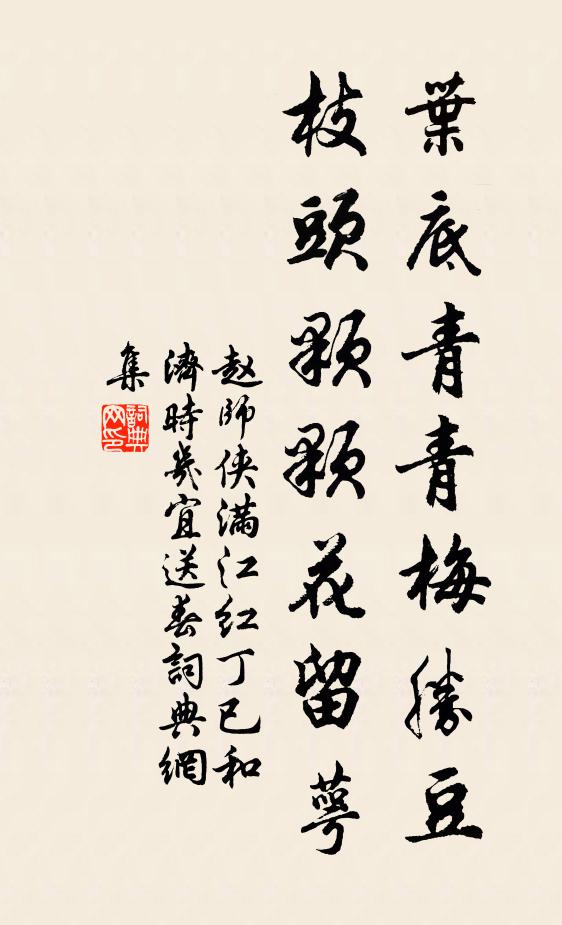 葉底青青梅勝豆
枝頭顆顆花留萼
赵師俠满江红丁巳和
濟時幾宜送春詞典網
集
詞典
网印